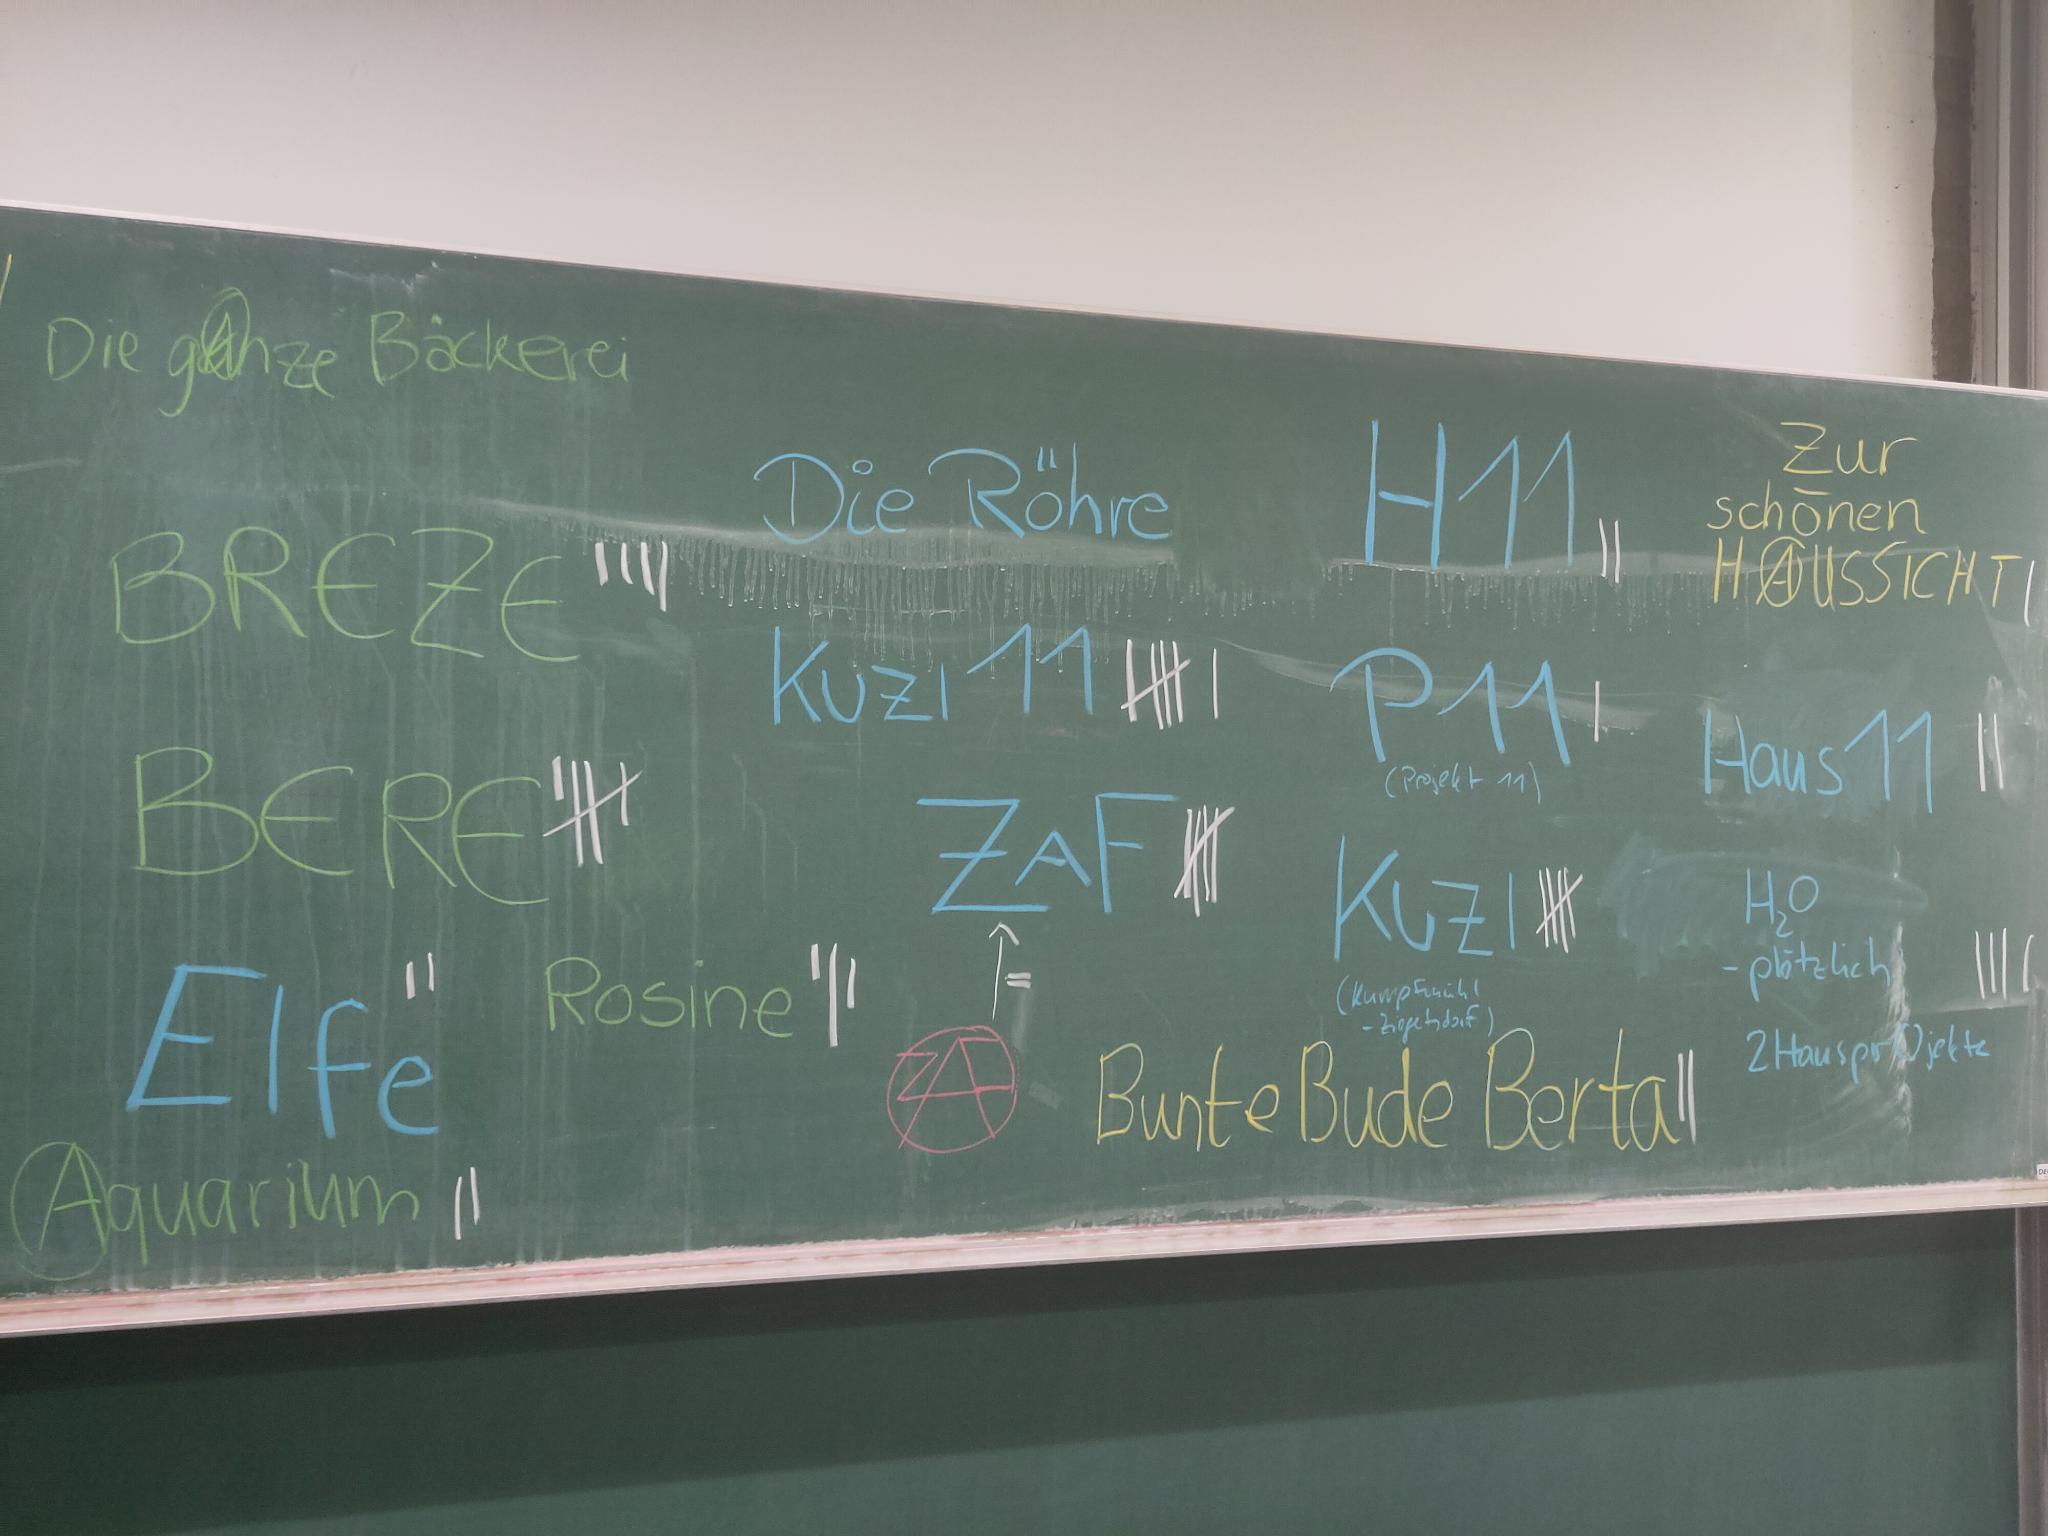 Die gAnze Bäckerei
BREZE
Die Röhre
H11
Zur
schönen
HAUSSICHT
KUZI 11
P11
(Projekt 11)
Haus 11
BERE
ZAF
KUZI
(Kumpfmühl
-Ziegetsdorf)
H₂O
- plötzlich
2HausprOjekte
Elfe
Rosine
=
ZAF
Bunte Bude Berta
Aquarium